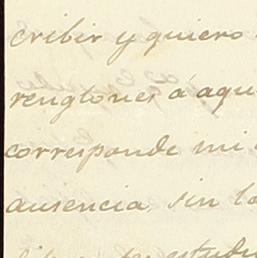 cribir y quiero
renglones á aqu
corresponde mi
ausencia, sin lo